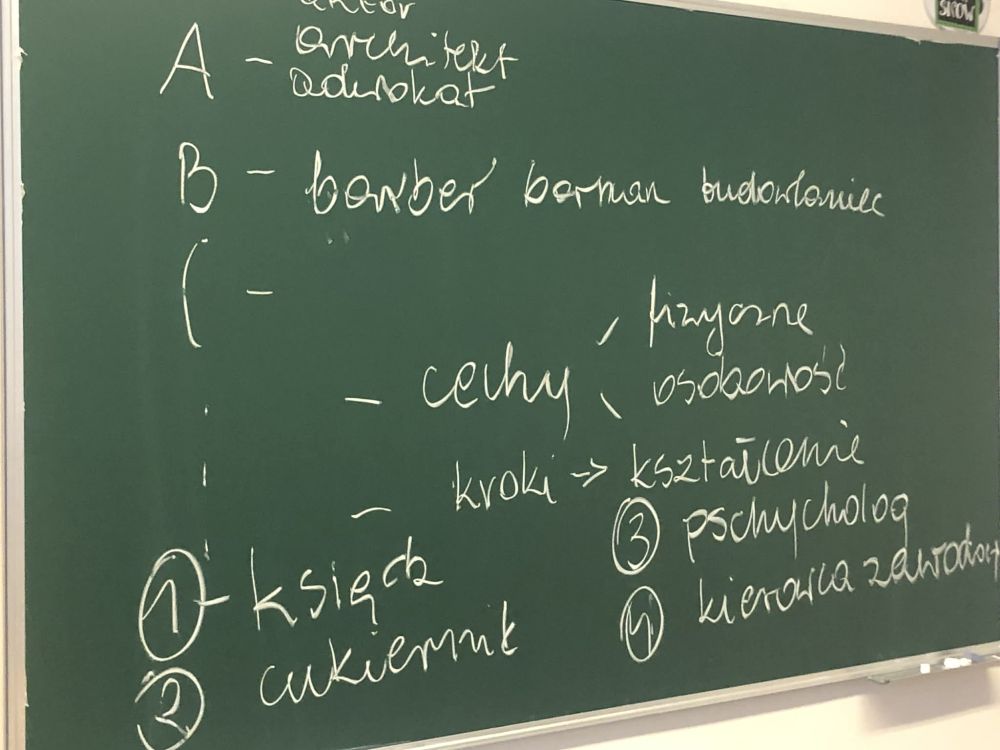 aktor
A - architekt
adwokat
B - barber barman budowlaniec
C -
- cechy
fizyczne
osobowość
- kroki -> kształcenie
① - ksiądz
② cukiernik
③ pschycholog
④ kierowca zawodowy